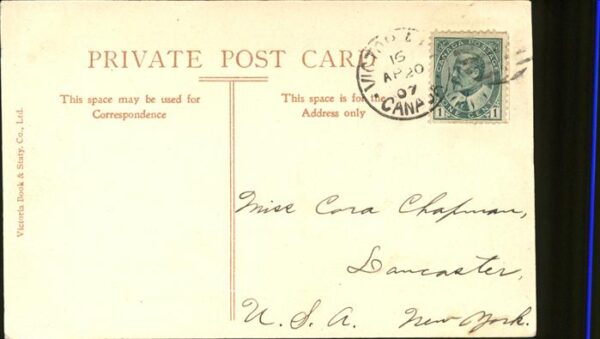 PRIVATE POST CARD
This space may be used for
Correspondence
This space is for the
Address only
Victoria Book & Staty. Co., Ltd.
16
AP 20
07
CANADA
CANADA POSTAGE
1 ONE CENT 1
Miss Cora Chapman,
Lancaster,
U. S. A. New York.